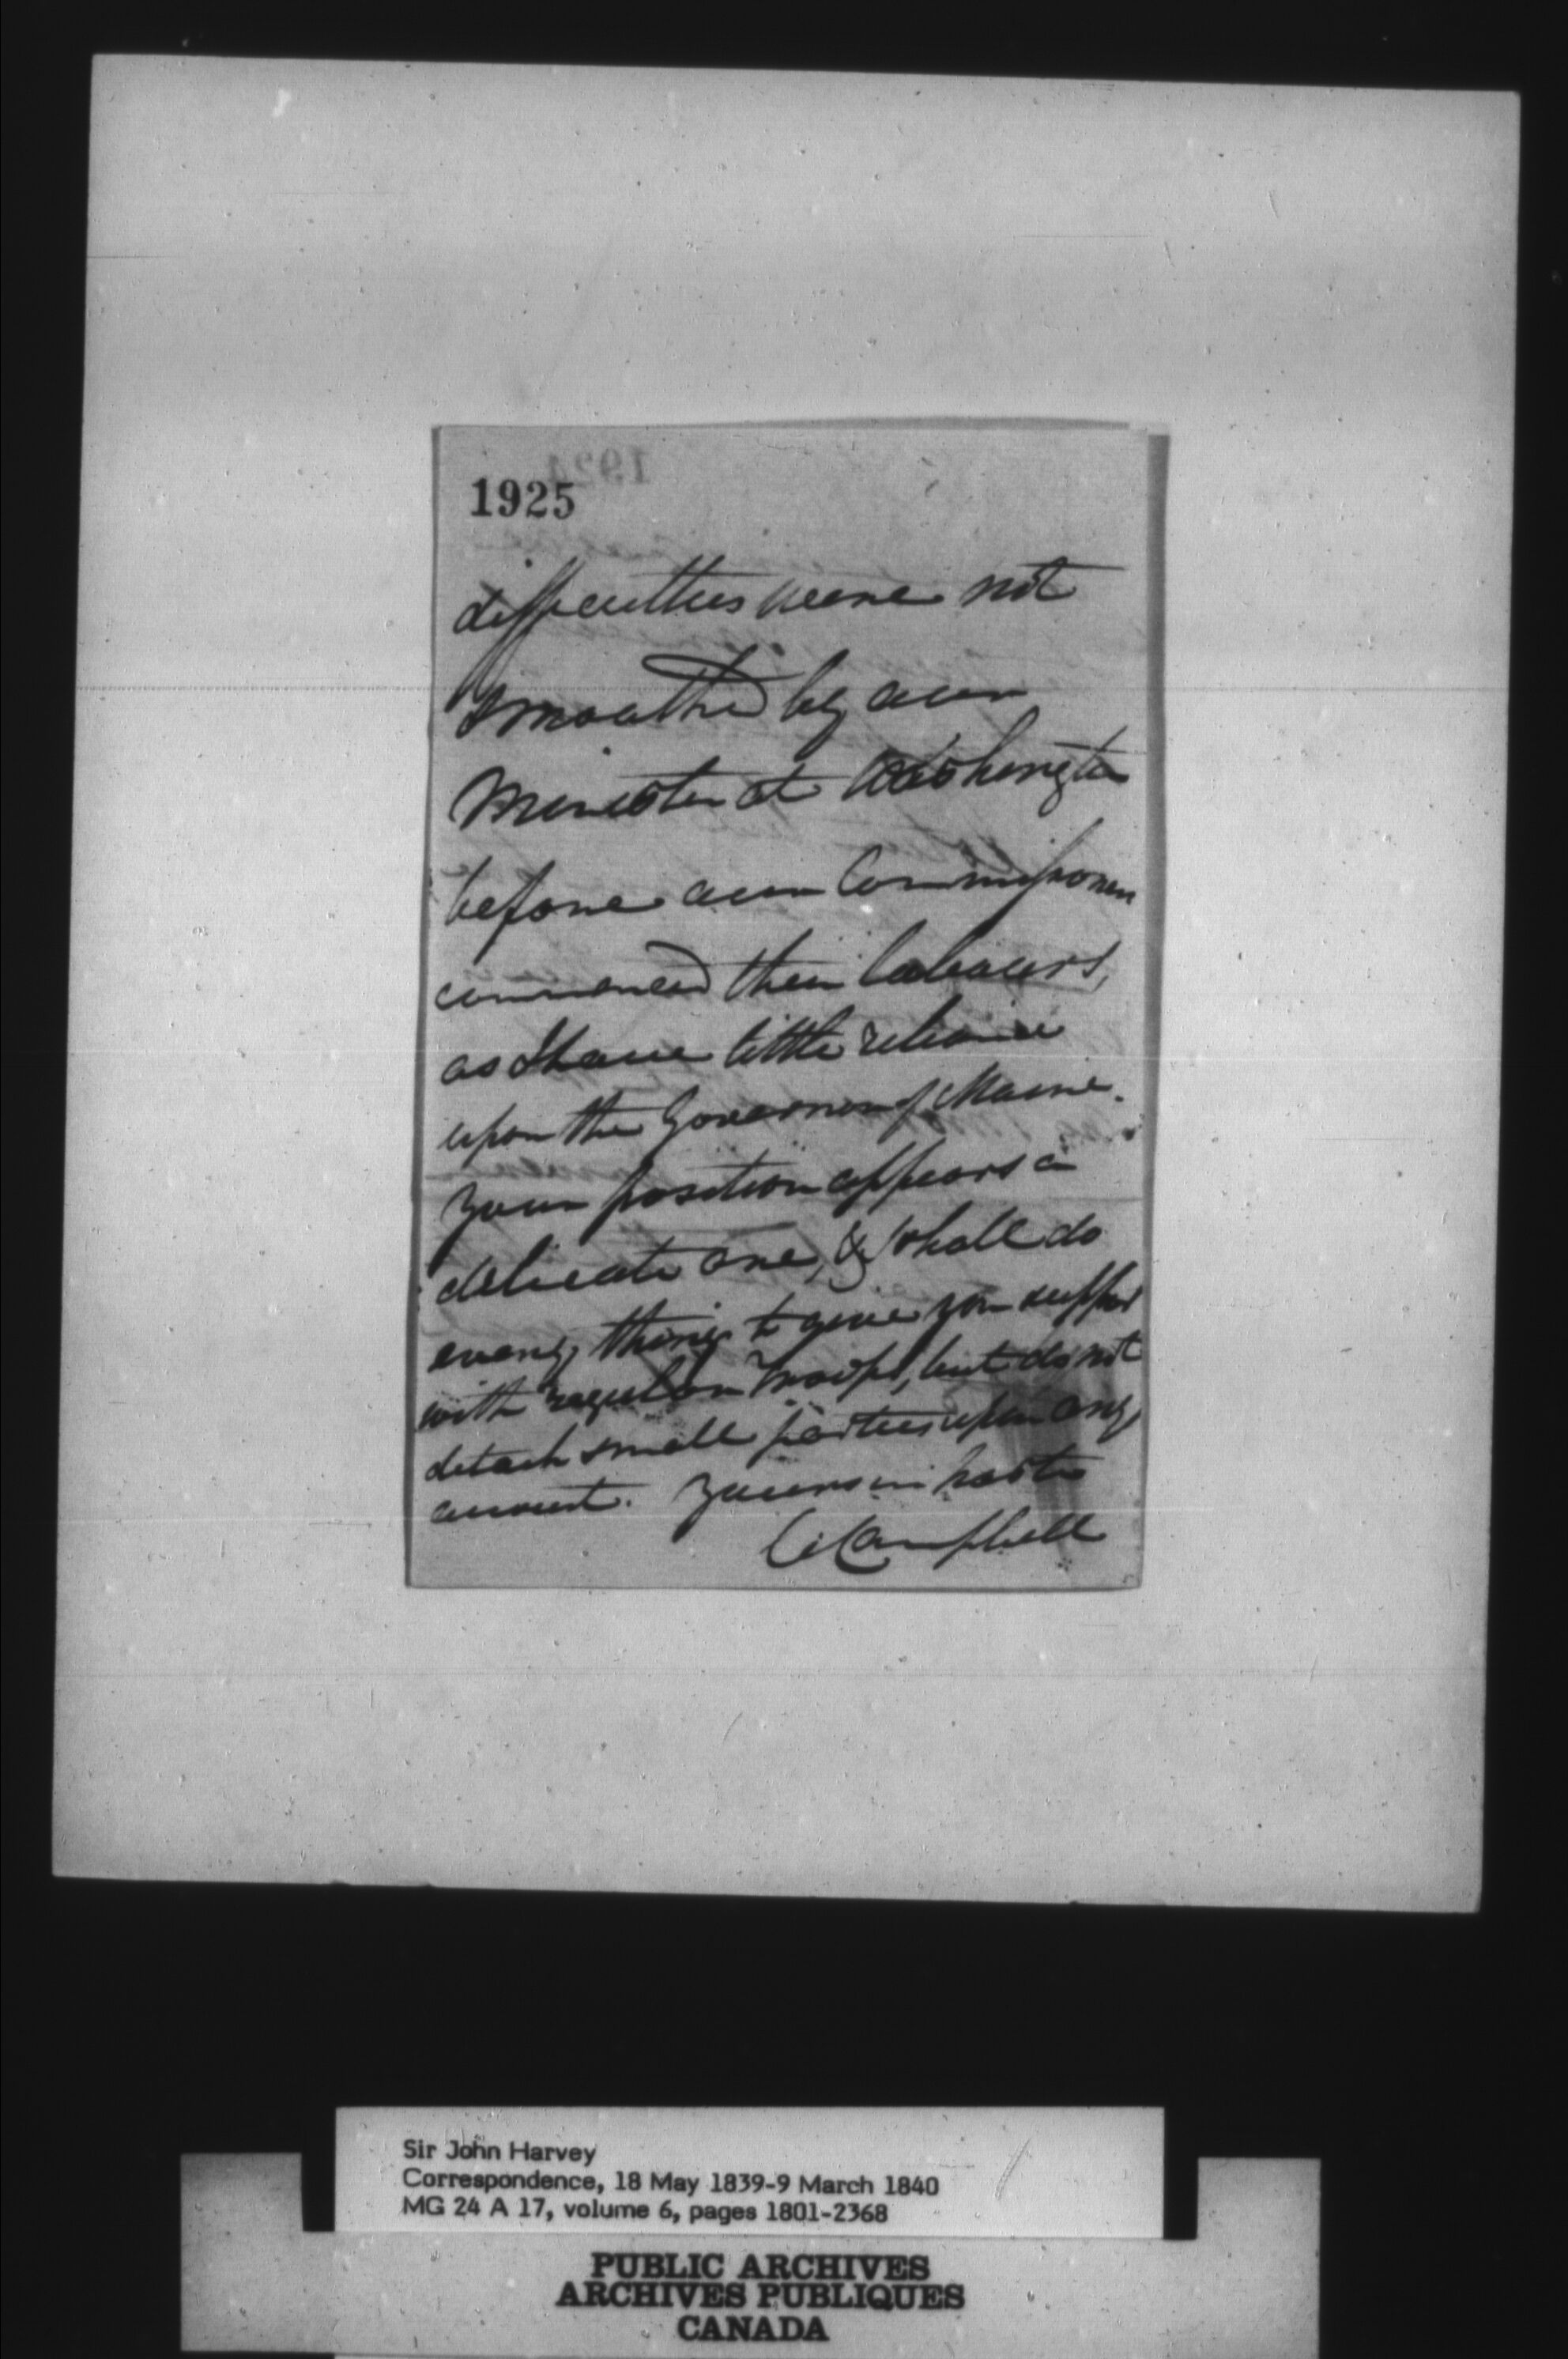 1925
difficulties were not
smoothed by our
Minister at Washington
before our Commissioners
commenced their labours,
as I have little reliance
upon the Governor of Maine.
Your position appears a
delicate one, & I shall do
every thing to give you support
with regular Troops, but do not
detach small parties upon any
account. Yours in haste
C Campbell
Sir John Harvey
Correspondence, 18 May 1839-9 March 1840
MG 24 A 17, volume 6, pages 1801-2368
PUBLIC ARCHIVES
ARCHIVES PUBLIQUES
CANADA